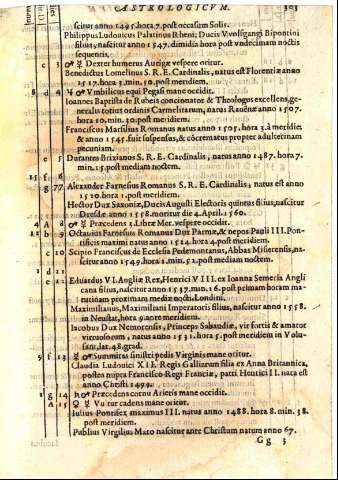 ASTROLOGICVM.
scitur anno 1495. hora 7. post occasum Solis.
Philippus Ludouicus Palatinus Rheni; Ducis V volfgangi Bipontini
filius, nascitur anno 1547. dimidia hora post vndecimam noctis
sequentis.
c 3 Dexter humerus Aurigæ vespere occidit.
Benedictus Lomelinus S. R. E. Cardinalis, natus est Florentiæ anno
1517. hora 3. min. 50. post meridiem.
Vmbilicus equi Pegasi mane oritur.
Ioannes Baptista de Rubeis concionator & Theologus excellens, ge-
neralis totius ordinis Carmelitarum, natus Rauenæ anno 1507.
hora 10. min. 30. post meridiem.
Franciscus Marsilius Romanus natus anno 1505. hora 15. à meridie.
& anno 1545. fuit suspensus, & cõcrematus propter adulterinam
pecuniam.
Durantes Brixianus S. R. E. Cardinalis, natus anno 1487. hora 7.
min. 15. post mediam noctem.
15 f 6
g 77 Alexander Farnesius Romanus S. R. E. Cardinalis, natus est anno
1520. hora 1. post meridiem.
Hector Dux Saxoniæ, Ducis Augusti Electoris quintus filius, nascitur
Dresdæ anno 1558. moritur die 4. April. 1560.
Præcedens Libræ Mer. vespere occidit.
Octauius Farnesius Romanus Dux Parmæ, & nepos Pauli III. Pon-
tificis maximi natus anno 1524. hora 24. post meridiem.
Scipio Franciscus de Ecclesia Pedemontanus, Abbas Miserensis, na-
scitur anno 1549. hora 1. min. 52. post mediam noctem.
1 d 21
Eduardus VI. Angliæ Rex, Henrici VIII. ex Ioanna Semeria Angli
cana filius, nascitur anno 1537. min. 16. post primam horam ma-
tutinam proximam mediæ noctis. Londini.
Maximilianus, Maximiliani Imperatoris filius, nascitur anno 1558.
in Neustat, hora 9. ante meridiem.
Iacobus Dux Nemorensis, Princeps Sabaudiæ, vir fortis & amator
virtuosorum, natus anno 1531. hora 5. post meridiem in Volu-
sani, lat. 48. grad.
9 f 13 Summitas sinistri pedis Virginis mane oritur.
Claudia Ludouici XII. Regis Galliarum filia ex Anna Britannica,
postea nupta Francisco Regi Franciæ, patri Henrici II. nata est
anno Christi 1499.
1 g 14 Præcedens cornu Arietis mane occidit.
A 15 Vultur cadens mane oritur.
Iulius Pontifex maximus III. natus anno 1488. hora 8. min. 38.
post meridiem.
Publius Virgilius Maro nascitur ante Christum natum anno 67.
Gg 3